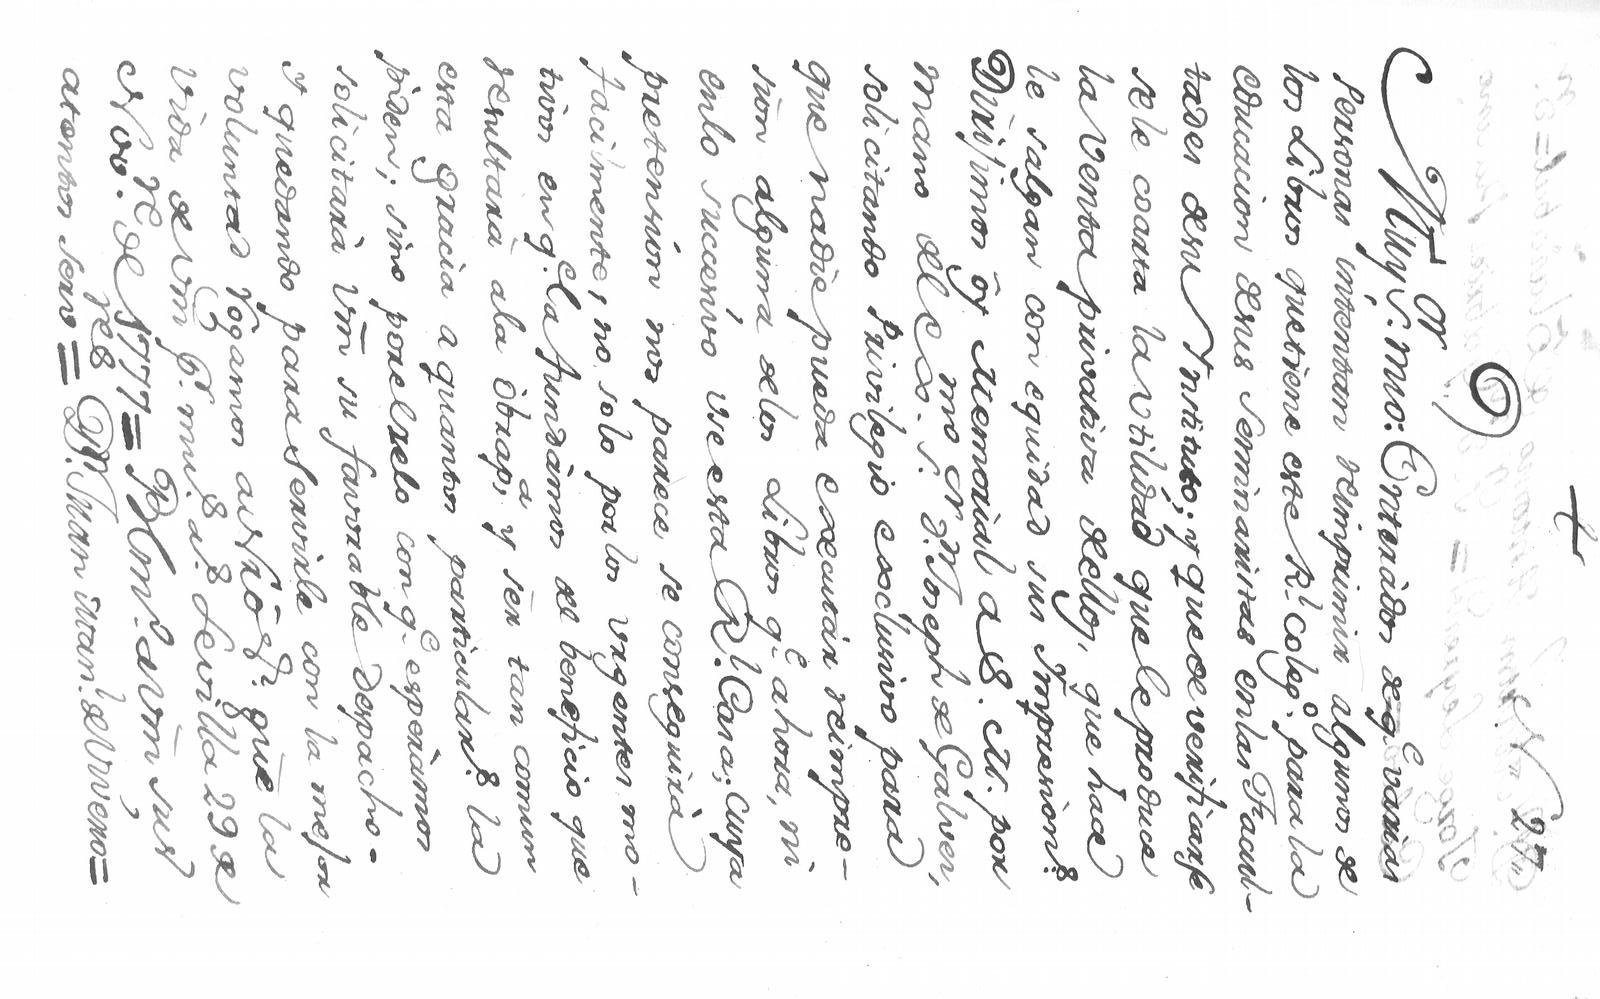 27
Muy S.or mio: Enterados de q.e varias
Personas intentan reimprimir algunos de
los Libros que tiene este R.l Coleg.o para la
educacion de sus Seminaristas en las Facul-
tades de su Instituto; y que de verificarse
se le coarta la vtilidad que le produce
la venta privativa de ellos, que hace
le salgan con equidad sus Impresion.s
Dirijimos oy Memorial a S. M. por
mano del Exc.mo S.r D.n Joseph de Galvez,
solicitando Privilegio exclusivo para
que nadie pueda executar reimpre-
sion alguna de los Libros q.e ahora, ni
en lo succesivo vse esta R.l Casa; cuya
pretension nos parece se conseguirà
facilmente, no solo por los vrgentes mo-
tivos en q.e la fundamos del beneficio que
resultarà a la obra pia, y ser tan comun
esta gracia a quantos particulares la
piden; sino por el zelo con q.e esperamos
solicitarà Vm su favorable despacho.
Y quedando para servirle con la mejor
voluntad rogamos a Nrô S.r que la
vida de Vm g.e m.s a.s Sevilla 29 de
Nov.re de 1777= BlM. de Vm sus
atentos serv.res = D.n Juan del Vvero=